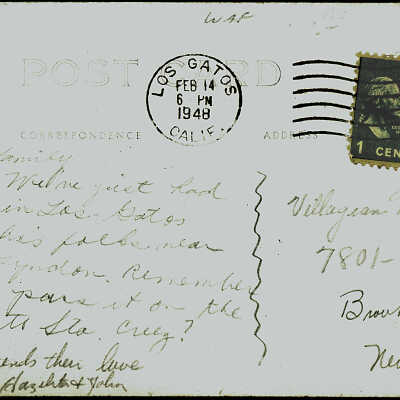 POST CARD
LOS GATOS
FEB 14
6 PM
1948
CALIF.
1 CEN
CORRESPONDENCE
ADDRESS
family
We've just had
in Los Gatos
his folks near
Lyndon. Remember
pass it on the
Sta. Creey?
sends their love
Hazel & John
Villagian
7801-
Broo
New